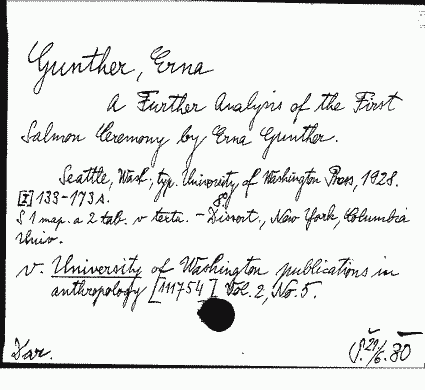 Gunther, Erna
A Further Analysis of the First
Salmon Ceremony by Erna Gunther.
Seattle, Wash., typ. University of Washington Press, 1928.
[I] 133-173 s. 8°
S 1 map. a 2 tab. v textu. - Dissert., New York, Columbia
Univ.
v. University of Washington publications in
anthropology [111754] Vol. 2, No. 5.
Dar.